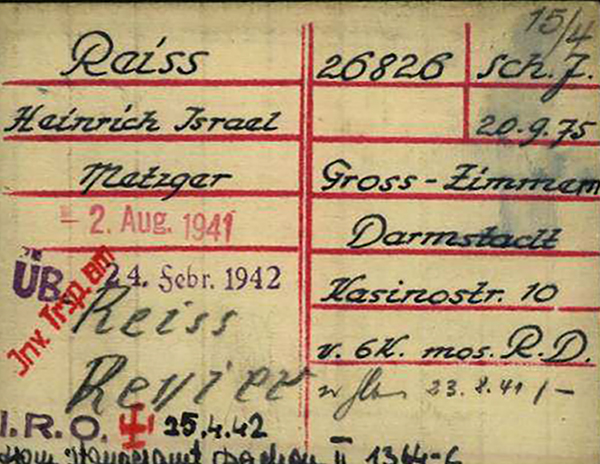 15/4
Reiss 26826 Sch. J.
Heinrich Israel 20.9.75
Metzger Gross-Zimmern
- 2. Aug. 1941 Darmstadt
ÜB 24. Febr. 1942
Inv. Trsp. am
Kasinostr. 10
Reiss
v. 6K. mos. R.D.
Revier 23.8.41 / -
I.R.O. 25.4.42
II 1364-C